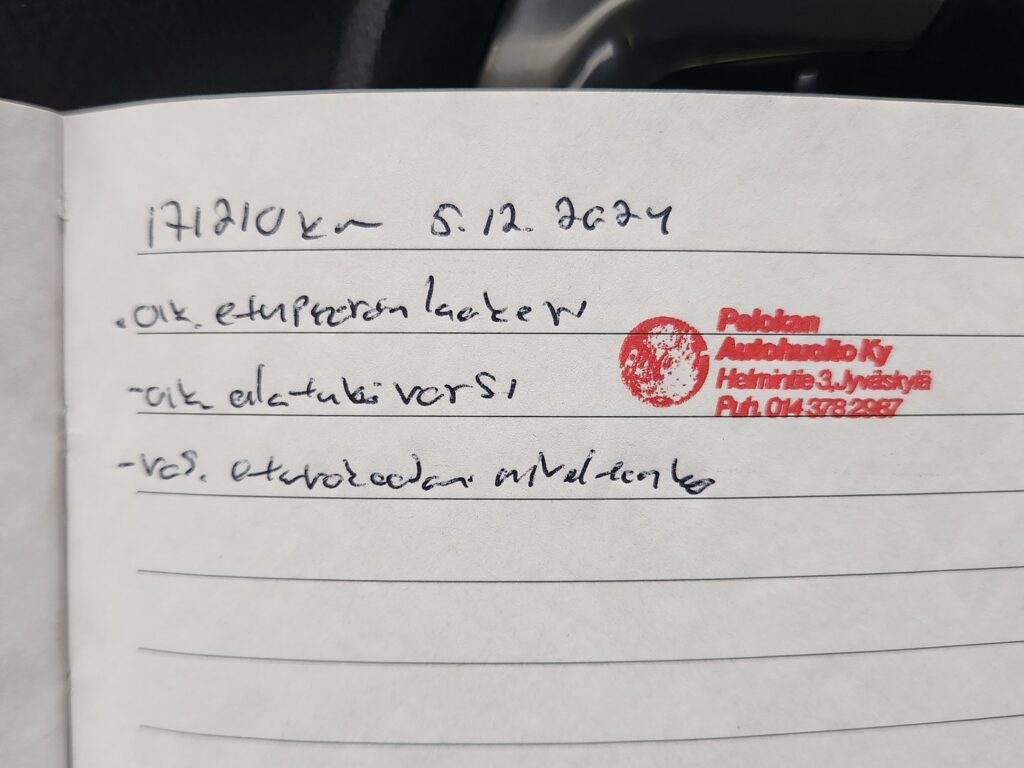 171210 km 5.12.2024
- oik. etupyörän laakeri
- oik. alatukivarsi
- vas. etuvakaajan niveltanko
Palokan
Autohuolto Ky
Helmintie 3, Jyväskylä
Puh. 014 378 2967